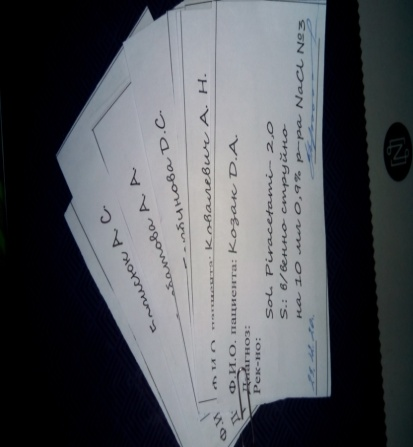 А. С.
А. А.
Д.С.
Ф.И.О. пациента: Ковалевич А. Н.
Ф.И.О. пациента: Козак Д.А.
Диагноз:
Рек-но:
Sol. Piracetami- 2.0
S.: в/венно струйно
на 10 мл 0,9% р-ра NaCl №3